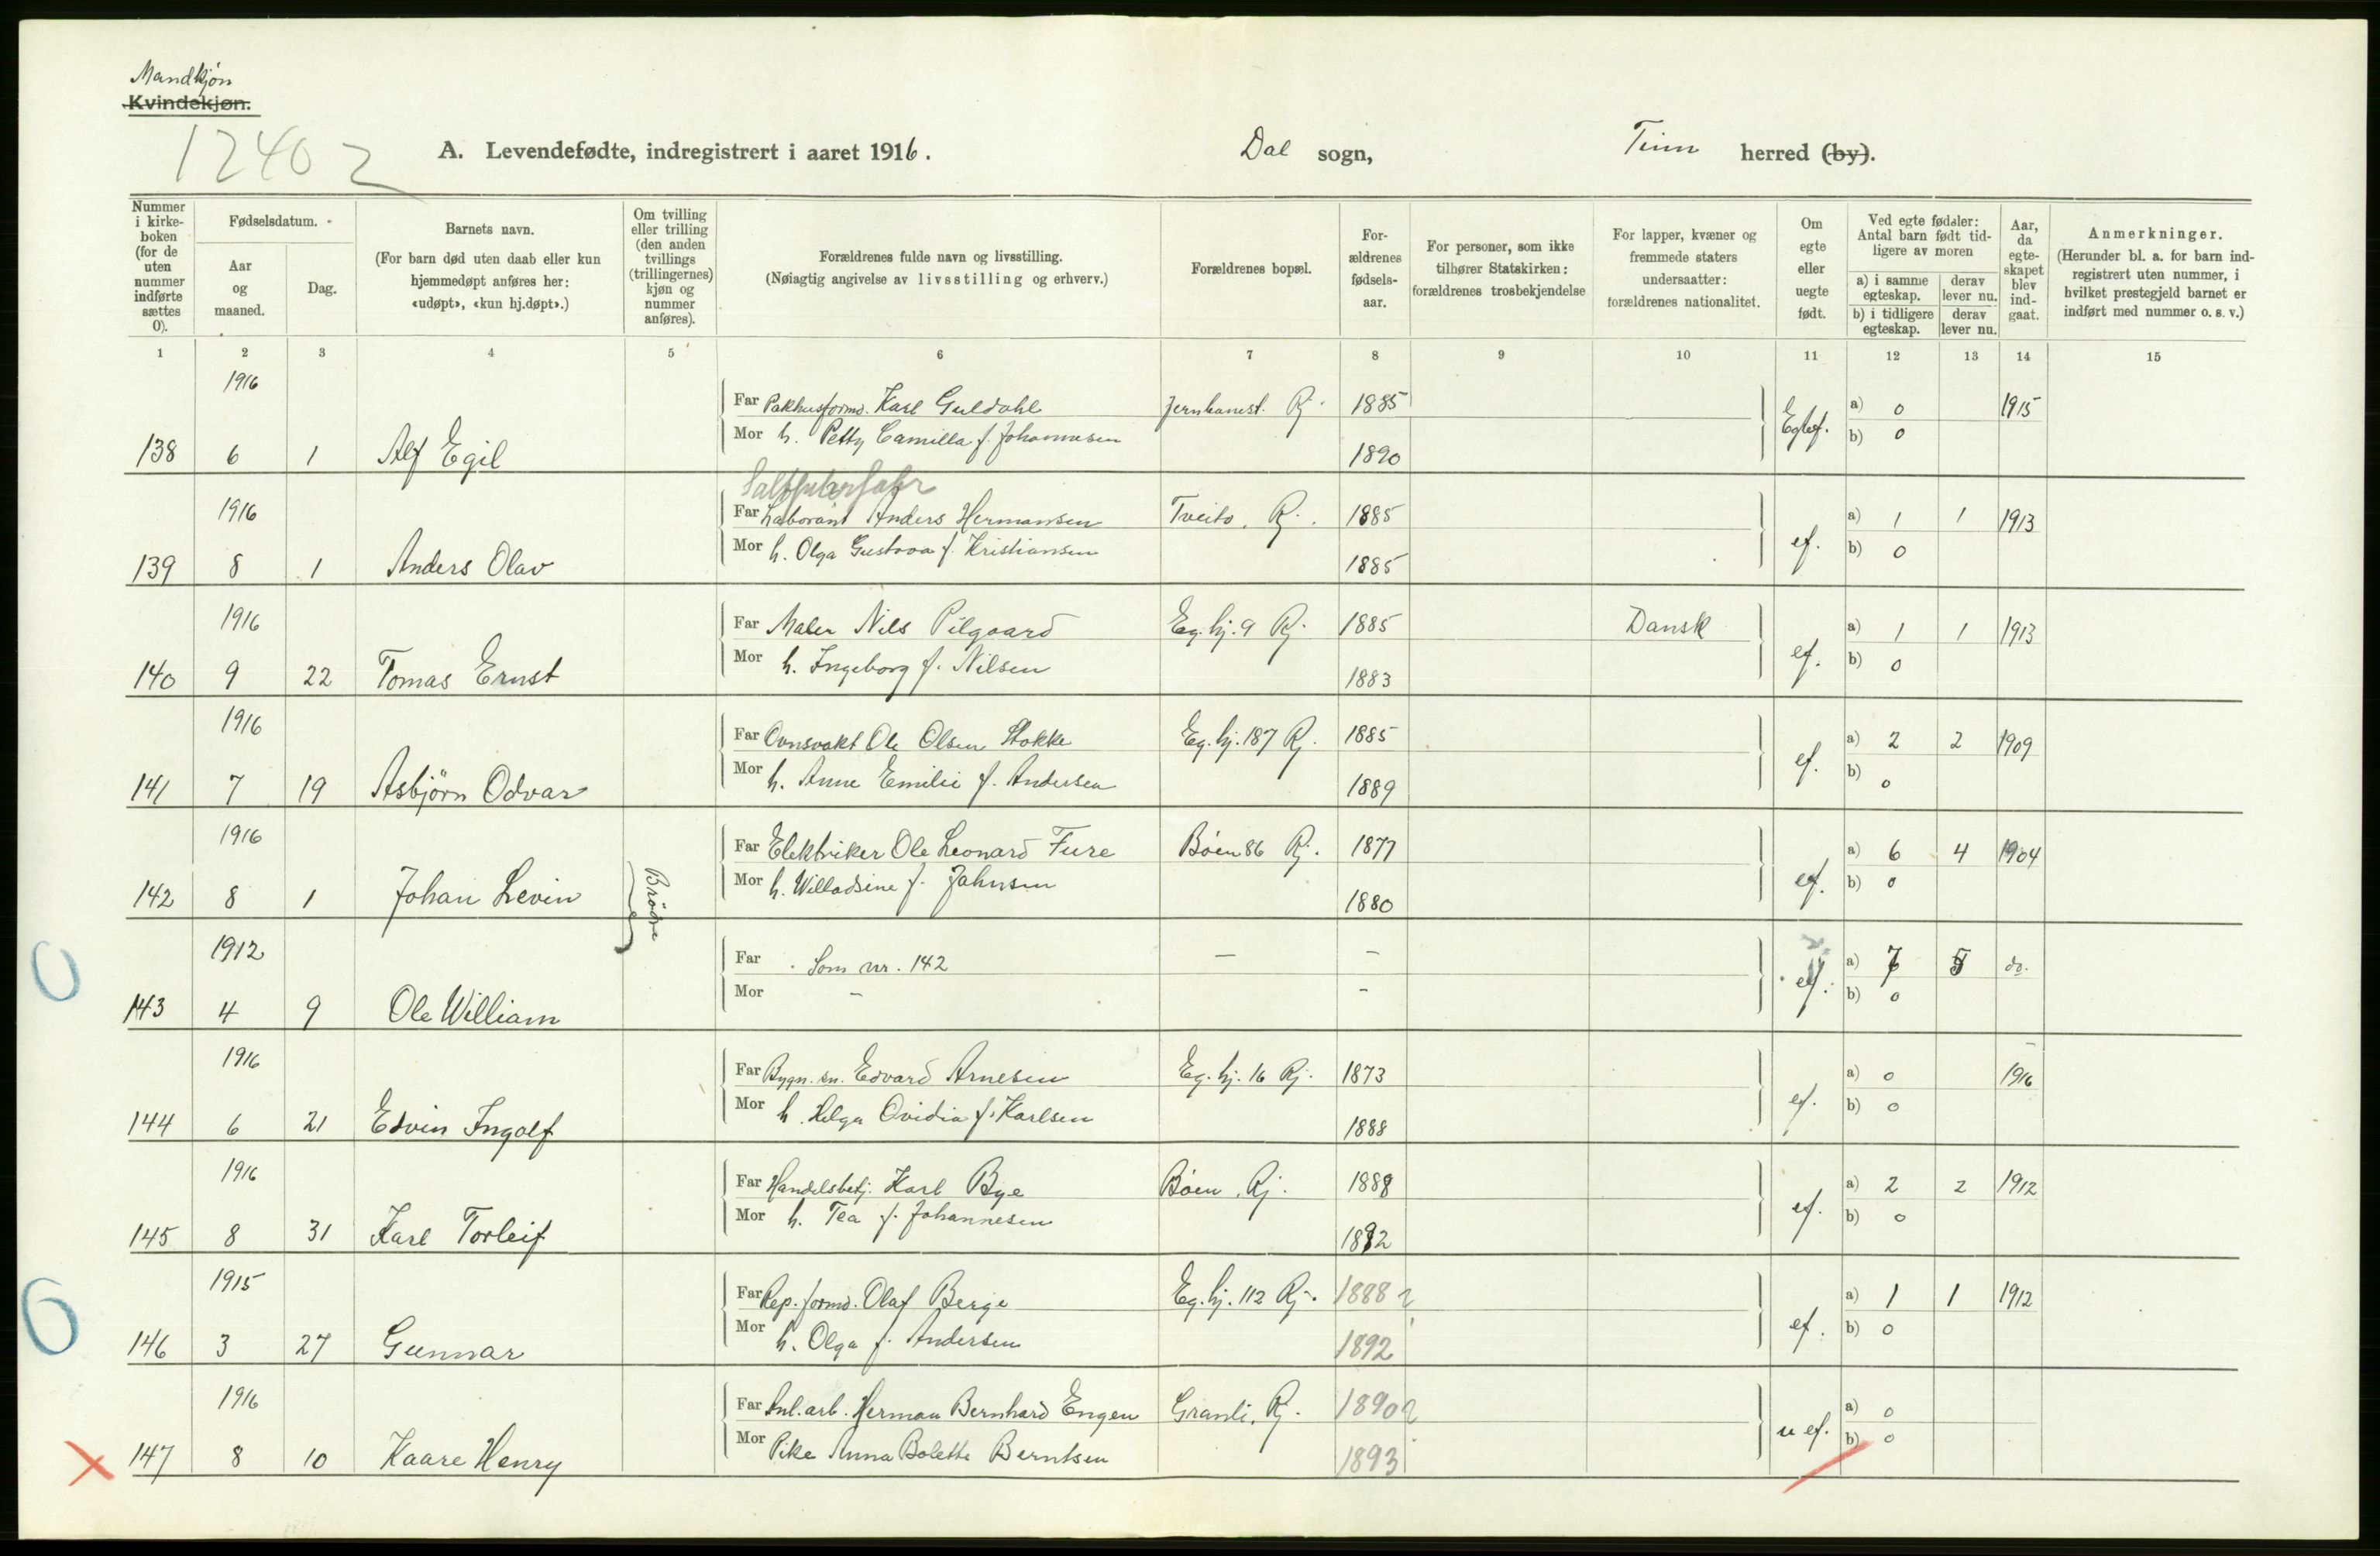 Mandkjøn
Kvindekjøn.
12402
A. Levendefødte, indregistrert i aaret 1916. Dal sogn, Tinn herred (by).
Nummer i kirkeboken (for de uten nummer indførte sættes 0).
Fødselsdatum.
Aar og maaned.
Dag.
Barnets navn.
(For barn død uten daab eller kun hjemmedøpt anføres her: «udøpt», «kun hj.døpt».)
Om tvilling eller trilling (den anden tvillings (trillingernes) kjøn og nummer anføres).
Forældrenes fulde navn og livsstilling.
(Nøiagtig angivelse av livsstilling og erhverv.)
Forældrenes bopæl.
Forældrenes fødselsaar.
For personer, som ikke tilhører Statskirken: forældrenes trosbekjendelse
For lapper, kvæner og fremmede staters undersaatter: forældrenes nationalitet.
Om egte eller uegte født.
Ved egte fødsler: Antal barn født tidligere av moren
a) i samme egteskap. derav lever nu.
b) i tidligere egteskap. derav lever nu.
Aar, da egteskapet blev indgaat.
Anmerkninger.
(Herunder bl. a. for barn indregistrert uten nummer, i hvilket prestegjeld barnet er indført med nummer o. s. v.)
1 2 3 4 5 6 7 8 9 10 11 12 13 14 15
1916
Far Pakhusformd. Karl Guldahl Jernbanest. Rj. 1885 a) 0 1915
Mor h. Petty Camilla f. Johannesen Egtef. b) 0
138 6 1 Alf Egil 1890
1916
Far Laborant Anders Hermansen Tveito, Rj. 1885 a) 1 1 1913
Mor h. Olga Gustava f. Kristiansen ef. b) 0
139 8 1 Anders Olav 1885
1916
Far Maler Nils Pilgaard Eg. hj. 9 Rj. 1885 Dansk a) 1 1 1913
Mor h. Ingeborg f. Nilsen ef. b) 0
140 9 22 Tomas Ernst 1883
1916
Far Ovnsvakt Ole Olsen Stokke Eg. hj. 187 Rj. 1885 a) 2 2 1909
Mor h. Anne Emilie f. Andersen ef. b) 0
141 7 19 Asbjørn Odvar 1889
1916
Far Elektriker Ole Leonard Fure Bøen 86 Rj. 1877 a) 6 4 1904
Mor h. Willadsine f. Jahnsen ef. b) 0
142 8 1 Johan Levin Brødre 1880
1912
Far Som nr. 142 — — a) 7 5 do.
Mor - - ef. b) 0
143 4 9 Ole William
1916
Far Bygn. sn. Edvard Arnesen Eg. hj. 16 Rj. 1873 a) 0 1916
Mor h. Helga Ovidia f. Karlsen ef. b) 0
144 6 21 Edvin Ingolf 1888
1916
Far Handelsbetj. Karl Bye Bøen, Rj. 1888 a) 2 2 1912
Mor h. Tea f. Johannesen ef. b) 0
145 8 31 Karl Torleif 1892
1915
Far Rep. formd. Olaf Berge Eg. hj. 112 Rj. 1888 ? a) 1 1 1912
Mor h. Olga f. Andersen ef. b) 0
146 3 27 Gunnar 1892
1916
Far Anl. arb. Herman Bernhard Engen Granli, Rj. 1890 ? a) 0
Mor Pike Anna Bolette Berntsen u ef. b) 0
147 8 10 Kaare Henry 1893